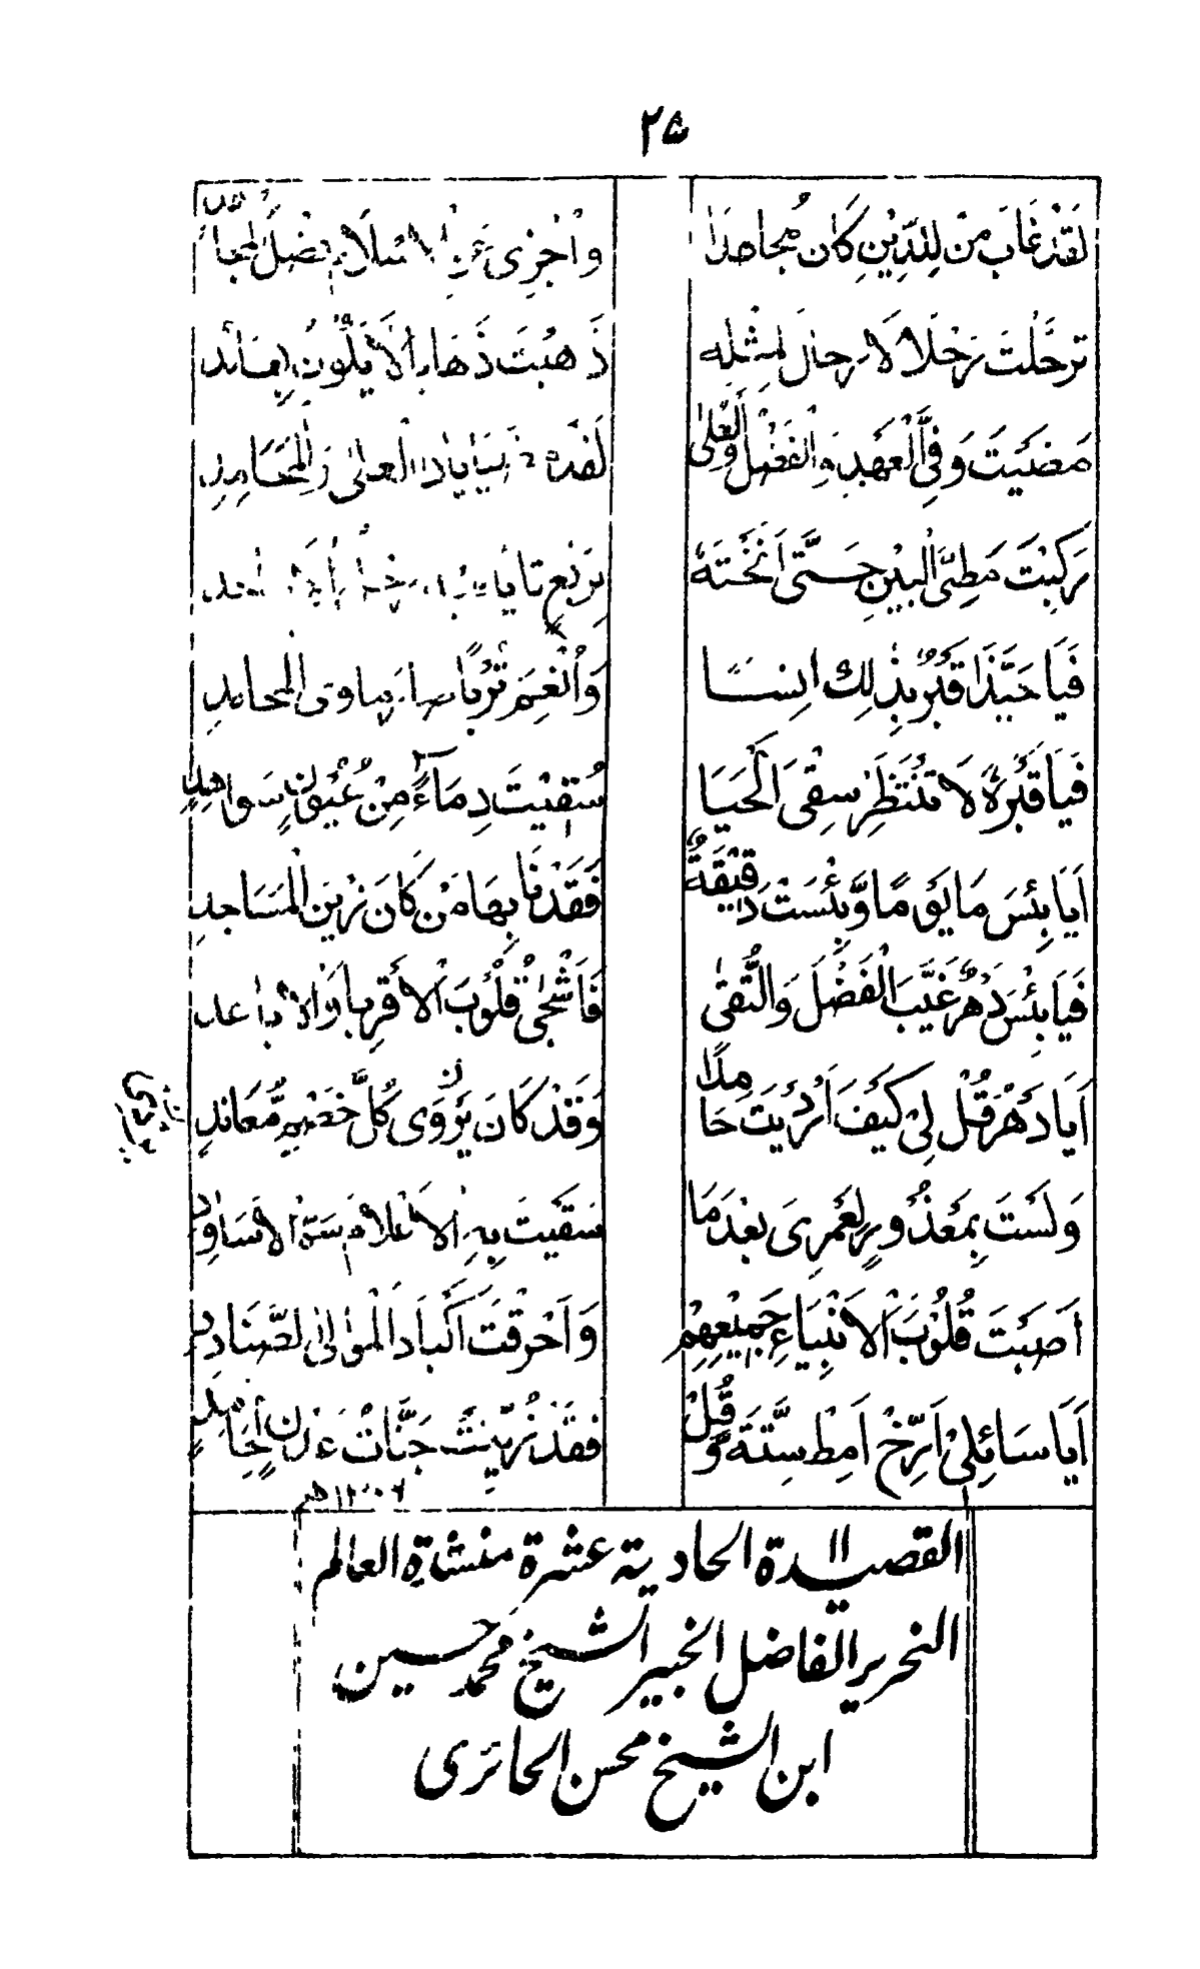 ٢٥
لَقَدْ غَابَ مَنْ لِلدِّيْنِ كَانَ مُجَاهِدًا وَاُجْزِىَ عَنِ الْاِسْلَامِ فَضْلَ
تَرَحَّلْتَ رَحْلًا لَا رِحَالَ لِمِثْلِهِ ذَهَبْتَ ذَهَابًا لَا يَكُوْنُ بِعَائِدِ
مَضَيْتَ وَفِىَّ الْعَهْدِ وَالْفَضْلِ وَالْعُلٰى الْعُلٰى وَالْمَحَامِدِ
رَكِبْتَ مَطِىَّ الْبَيْنِ حَتّٰى اَنَخْتَهُ بِرَبْعٍ
فَيَا حَبَّذَا قَبْرٌ بِذٰلِكَ انِسًا وَاَنْعِمْ تُرْبًا الْمَحَامِدِ
فَيَا قَبْرَهُ لَا تَنْتَظِرْ سِقْىَ الْحَيَا سُقِيْتَ دِمَاءً مِنْ عُيُوْنٍ سَوَاهِدِ
اَيَا بِئْسَ مَا يَوْمًا وَبِئْسَتْ دَقِيْقَةٌ فَقَدْنَا بِهَا مَنْ كَانَ زَيْنَ الْمَسَاجِدِ
فَيَا بِئْسَ دَهْرٌ غَيَّبَ الْفَضْلَ وَالتُّقٰى فَاَشْجٰى قُلُوْبَ الْاَقْرِبَا وَالْاَبَاعِدِ
اَيَا دَهْرُ قُلْ لِىْ كَيْفَ اَرْدَيْتَ حَامِدًا وَقَدْ كَانَ يُرْوِى كُلَّ خَصْمٍ مُعَانِدِ
وَلَسْتَ بِمَعْذُوْرٍ لَعَمْرِىَ بَعْدَمَا سَقَيْتَ بِهِ الْاَعْلَامَ سَمَّ الْاَسَاوِدِ
اَصَبْتَ قُلُوْبَ الْاَنْبِيَاءِ جَمِيْعِهِمْ وَاَحْرَقْتَ اَكْبَادَ الْمَوَالِى الصَّنَادِدِ
اَيَا سَائِلِىْ اَرِّخْ اَمِطْ سِتَّةً وَّقُلْ فَقَدْ زُيِّنَتْ جَنَّاتُ عَدْنٍ
القصيدة الحادية عشرة منشاة العالم
النحرير الفاضل الخبير الشيخ محمد حسين
ابن الشيخ محسن الحائرى